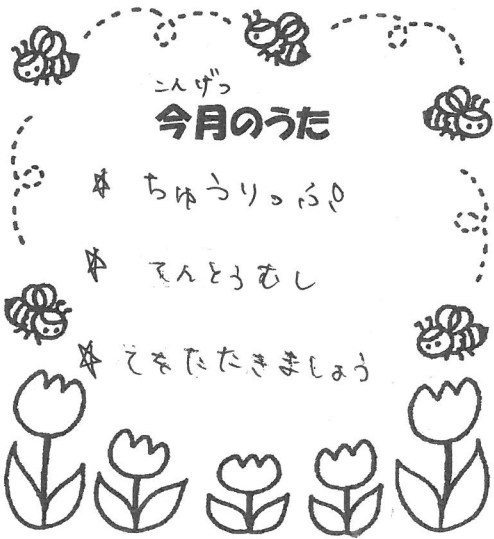 こんげつ
今月のうた
☆ ちゅうりっぷ
☆ てんとうむし
☆ てをたたきましょう